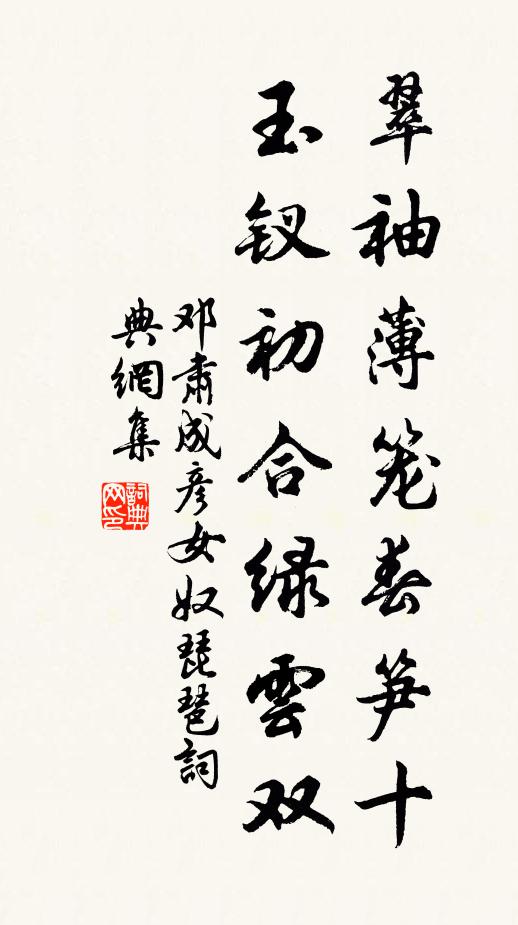 翠袖薄笼春笋十
玉钗初合绿雲双
邓肃成彦女奴琵琶詞
典網集
詞典
网印